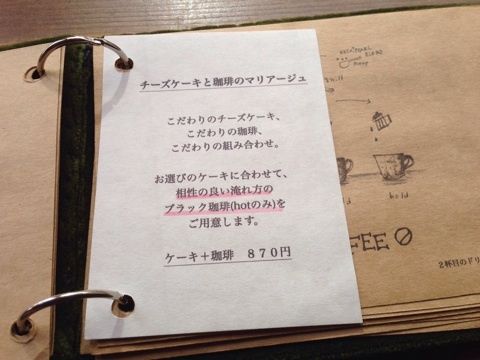 チーズケーキと珈琲のマリアージュ
こだわりのチーズケーキ、
こだわりの珈琲、
こだわりの組み合わせ。
お選びのケーキに合わせて、
相性の良い淹れ方の
ブラック珈琲(hotのみ)を
ご用意します。
ケーキ＋珈琲　８７０円
hold
FFEE
2杯目のドリ